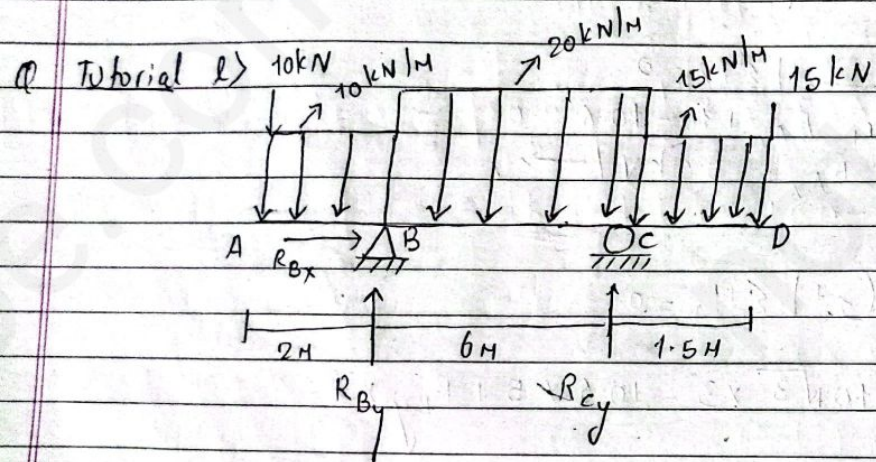 Q Tutorial 1) 10kN 10kN/M 20kN/M 15kN/M 15kN
A R_Bx B C D
2M 6M 1.5M
R_By R_Cy